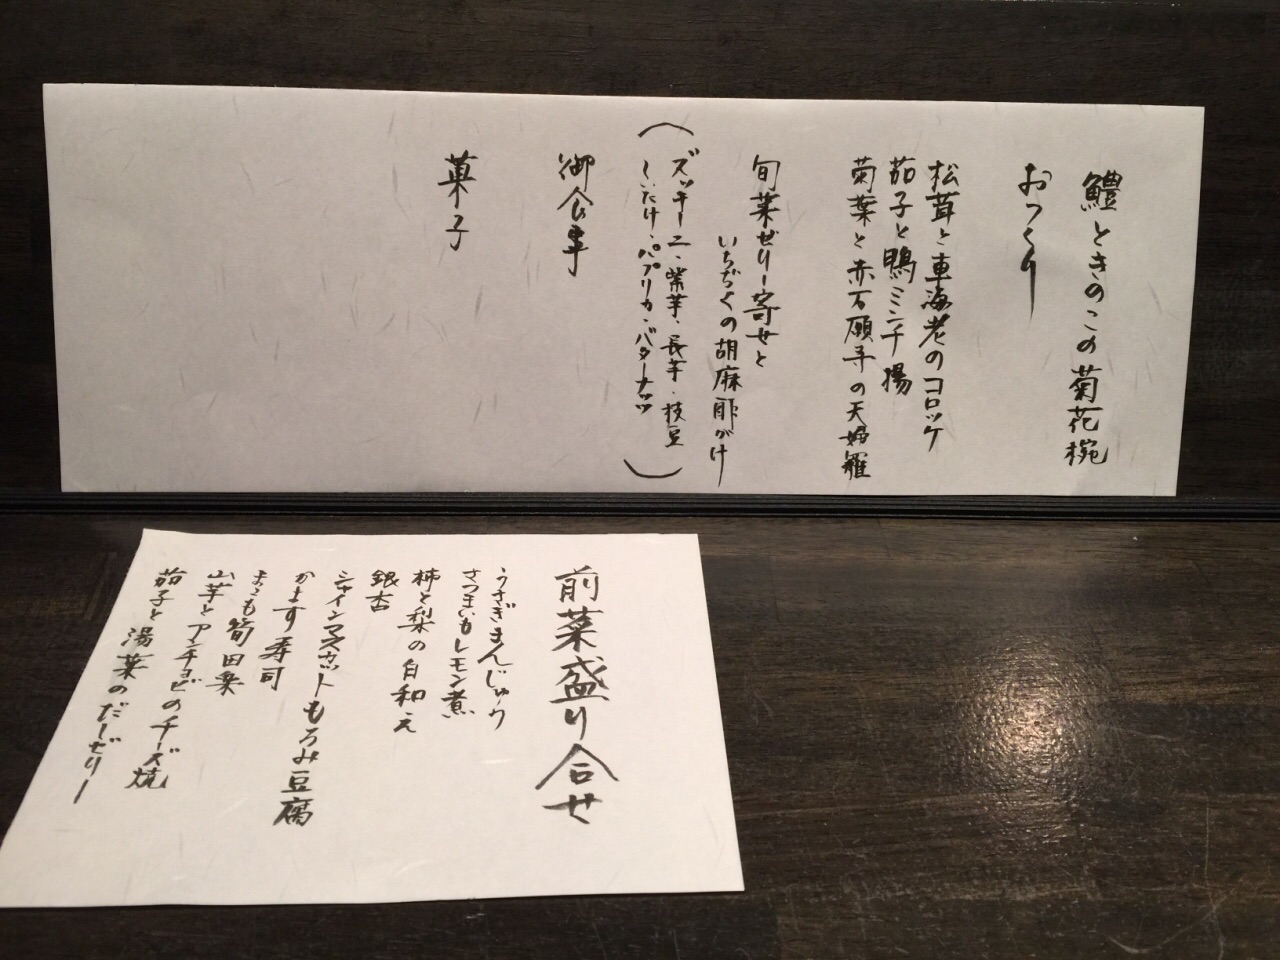 鱧ときのこの菊花椀
おつくり
松茸と車海老のコロッケ
茄子と鴨ミンチ揚
菊葉と赤万願寺の天婦羅
旬菜ゼリー寄せと
いちぢくの胡麻酢がけ
(ズッキーニ、紫芋、長芋、枝豆
しいたけ、パプリカ、バターナッツ)
御食事
菓子
前菜盛り合せ
うさぎまんじゅう
さつまいもレモン煮
柿と梨の白和え
銀杏
シャインマスカットもろみ豆腐
かます寿司
まこも筍田楽
山芋とアンチョビのチーズ焼
茄子と湯葉のだしゼリー